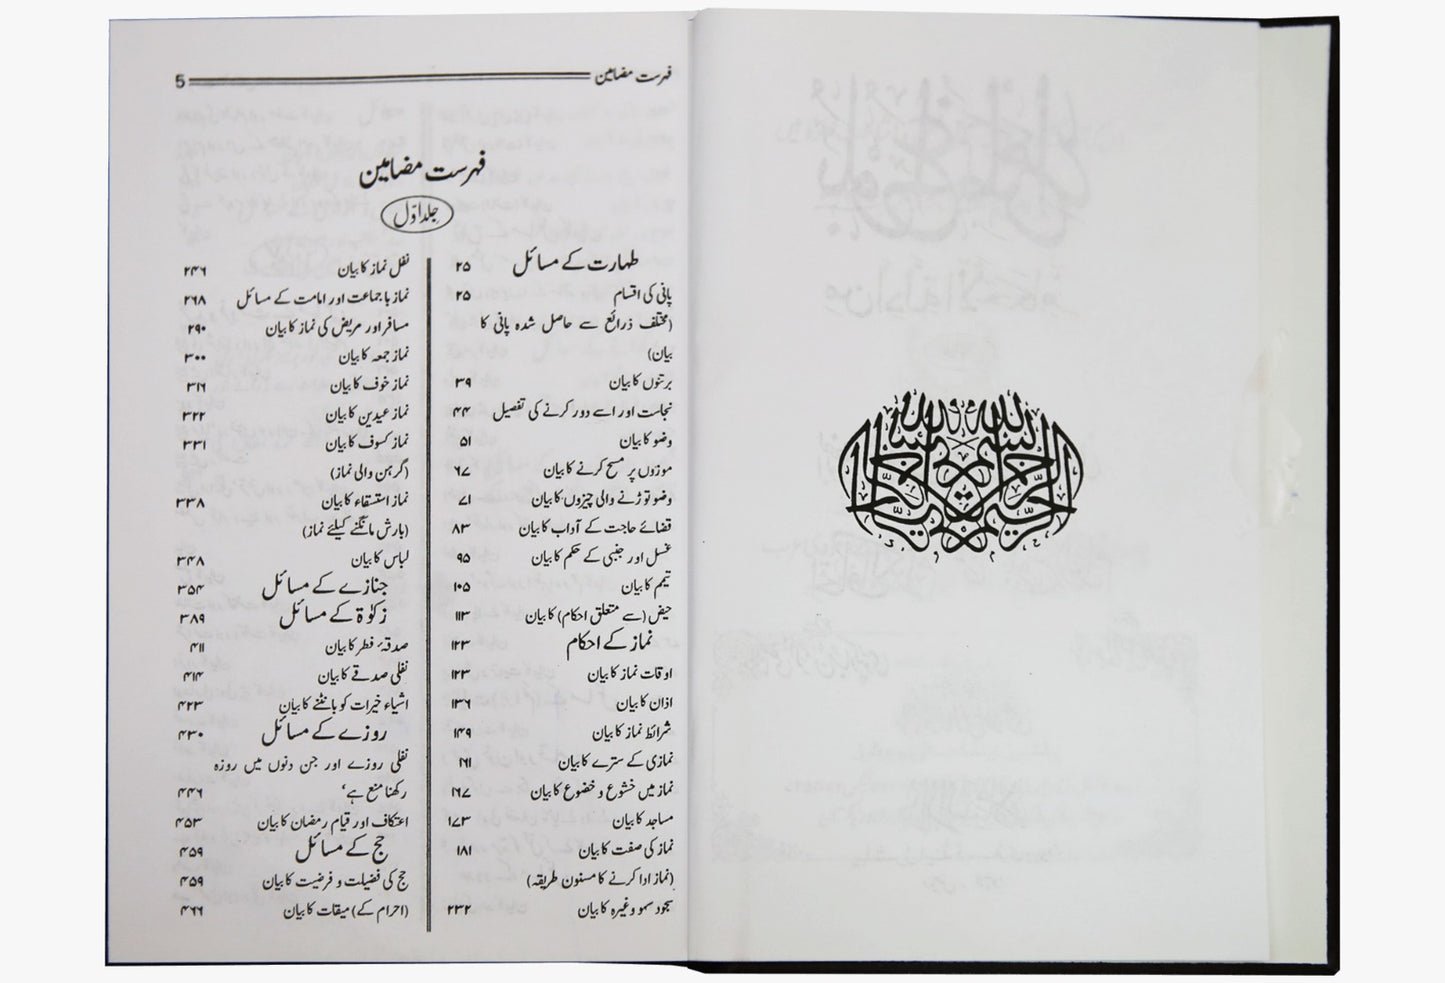 فہرست مضامین 5
فہرست مضامین
جلد اوّل
طہارت کے مسائل ۲۵
پانی کی اقسام ۲۵
(مختلف ذرائع سے حاصل شدہ پانی کا
بیان)
برتنوں کا بیان ۳۹
نجاست اور اسے دور کرنے کی تفصیل ۴۴
وضو کا بیان ۵۱
موزوں پر مسح کرنے کا بیان ۶۷
وضو توڑنے والی چیزوں کا بیان ۷۱
قضائے حاجت کے آداب کا بیان ۸۳
غسل اور جنبی کے حکم کا بیان ۹۵
تیمم کا بیان ۱۰۵
حیض (سے متعلق احکام) کا بیان ۱۱۳
نماز کے احکام ۱۲۳
اوقات نماز کا بیان ۱۲۳
اذان کا بیان ۱۳۶
شرائط نماز کا بیان ۱۴۹
نمازی کے سترے کا بیان ۱۶۱
نماز میں خشوع و خضوع کا بیان ۱۶۷
مساجد کا بیان ۱۷۳
نماز کی صفت کا بیان ۱۸۱
(نماز ادا کرنے کا مسنون طریقہ)
سجود سہو وغیرہ کا بیان ۲۳۲
نفل نماز کا بیان ۲۴۶
نماز باجماعت اور امامت کے مسائل ۲۶۸
مسافر اور مریض کی نماز کا بیان ۲۹۰
نماز جمعہ کا بیان ۳۰۰
نماز خوف کا بیان ۳۱۶
نماز عیدین کا بیان ۳۲۲
نماز کسوف کا بیان ۳۳۱
(گرہن والی نماز)
نماز استسقاء کا بیان ۳۳۸
(بارش مانگنے کیلئے نماز)
لباس کا بیان ۳۴۸
جنازے کے مسائل ۳۵۴
زکوٰۃ کے مسائل ۳۸۹
صدقۂ فطر کا بیان ۴۱۱
نفلی صدقے کا بیان ۴۱۴
اشیاء خیرات کو بانٹنے کا بیان ۴۲۳
روزے کے مسائل ۴۳۰
نفلی روزے اور جن دنوں میں روزہ
رکھنا منع ہے، ۴۴۶
اعتکاف اور قیام رمضان کا بیان ۴۵۳
حج کے مسائل ۴۵۹
حج کی فضیلت و فرضیت کا بیان ۴۵۹
(احرام کے) میقات کا بیان ۴۶۶
بسم الله الرحمن الرحيم